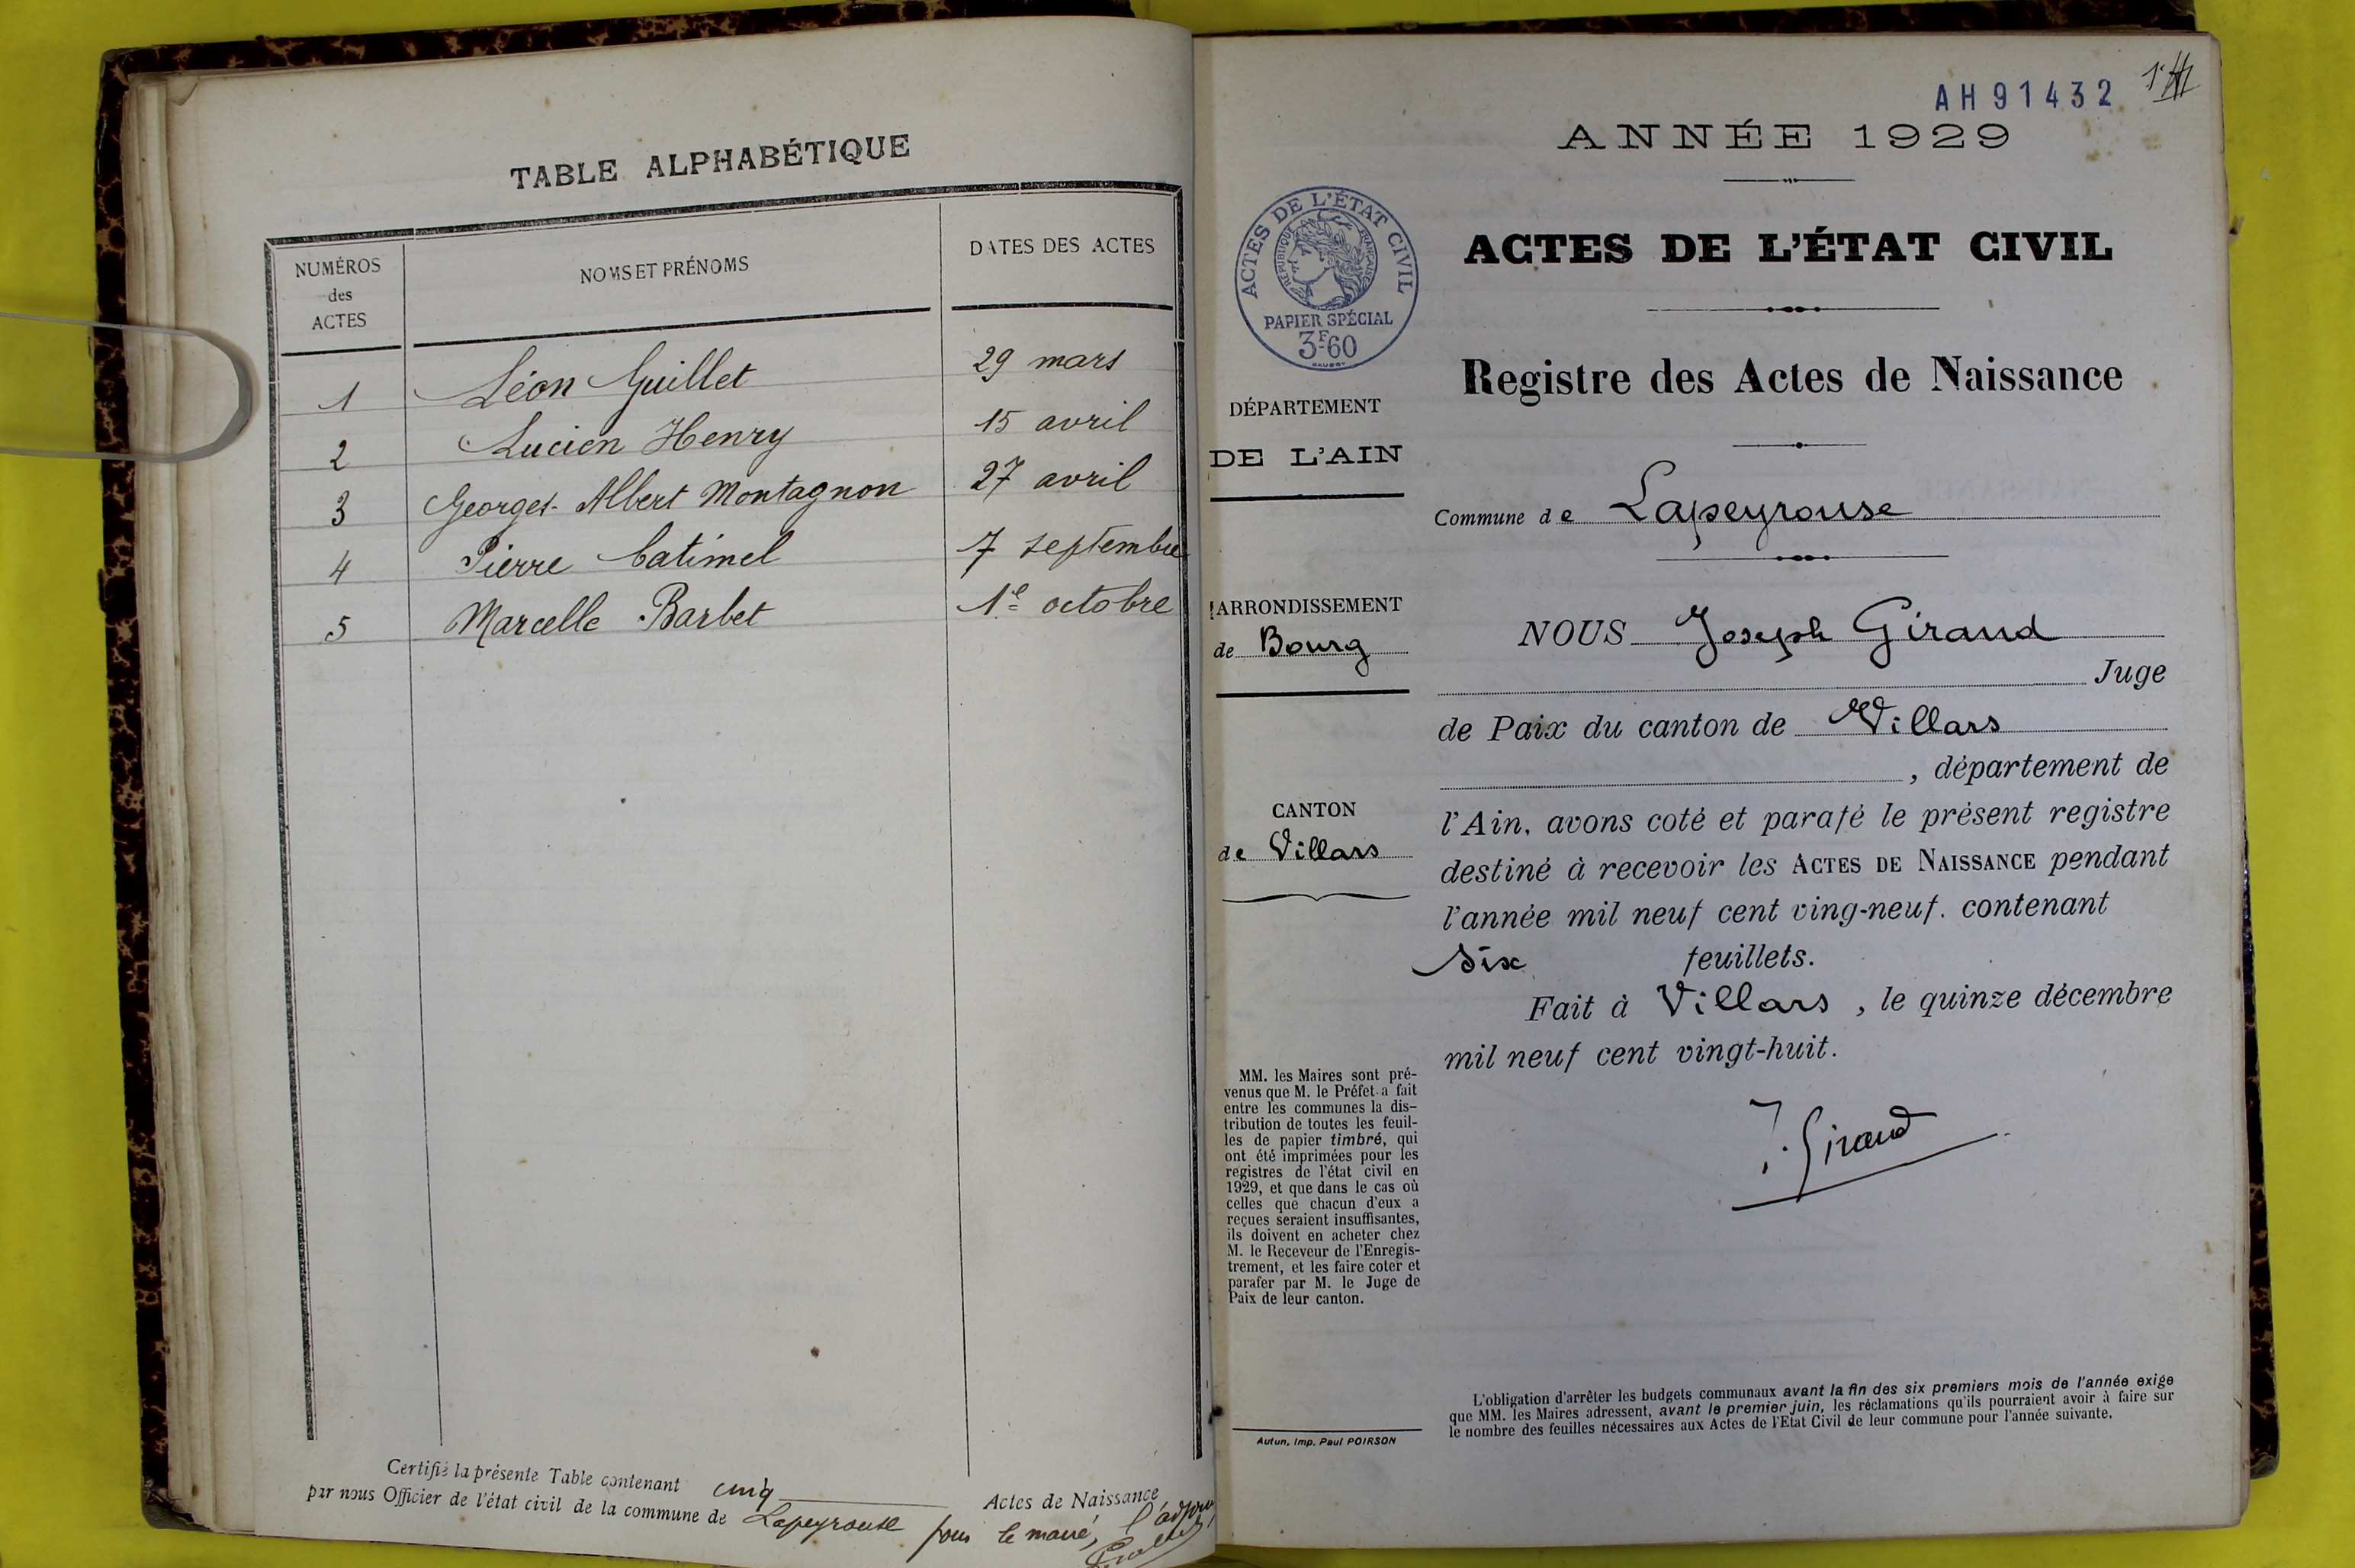 TABLE ALPHABÉTIQUE
NUMÉROS
des
ACTES
NOMS ET PRÉNOMS
DATES DES ACTES
1 Léon Guillet 29 mars
2 Lucien Henry 15 avril
3 Georges-Albert Montagnon 27 avril
4 Pierre Catimel 7 septembre
5 Marcelle Barbet 1e octobre
Certifié la présente Table contenant cinq Actes de Naissance
par nous Officier de l'état civil de la commune de Lapeyrouse pour le maire, l'adjoint
AH91432
ANNÉE 1929
ACTES DE L'ÉTAT CIVIL
RÉPUBLIQUE FRANÇAISE
PAPIER SPÉCIAL
3F60
DÉPARTEMENT
DE L'AIN
ARRONDISSEMENT
de Bourg
CANTON
de Villars
MM. les Maires sont pré-
venus que M. le Préfet a fait
entre les communes la dis-
tribution de toutes les feuil-
les de papier timbré, qui
ont été imprimées pour les
registres de l'état civil en
1929, et que dans le cas où
celles que chacun d'eux a
reçues seraient insuffisantes,
ils doivent en acheter chez
M. le Receveur de l'Enregis-
trement, et les faire coter et
parafer par M. le Juge de
Paix de leur canton.
Autun, Imp. Paul POIRSON
ACTES DE L'ÉTAT CIVIL
Registre des Actes de Naissance
Commune de Lapeyrouse
NOUS Joseph Giraud
Juge
de Paix du canton de Villars
, département de
l'Ain, avons coté et parafé le présent registre
destiné à recevoir les ACTES DE NAISSANCE pendant
l'année mil neuf cent ving-neuf. contenant
six feuillets.
Fait à Villars, le quinze décembre
mil neuf cent vingt-huit.
J. Giraud
L'obligation d'arrêter les budgets communaux avant la fin des six premiers mois de l'année exige
que MM. les Maires adressent, avant le premier juin, les réclamations qu'ils pourraient avoir à faire sur
le nombre des feuilles nécessaires aux Actes de l'Etat Civil de leur commune pour l'année suivante.